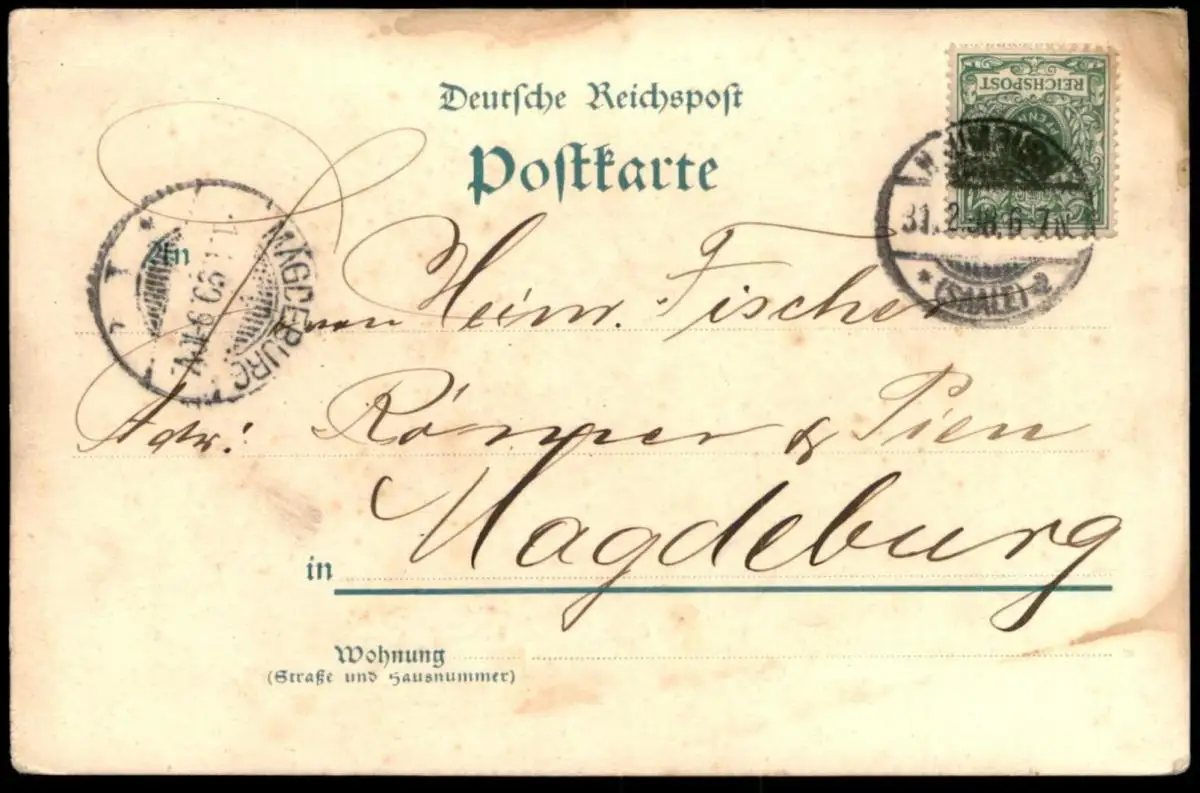 Deutsche Reichspost
Postkarte
REICHSPOST
31. 2. 98. 6-7 N.
* (SAALE)
MAGDEBURG
An
Herrn Heinr. Fischer
Adr: Römper & Pien
in Magdeburg
Wohnung
(Straße und Hausnummer)